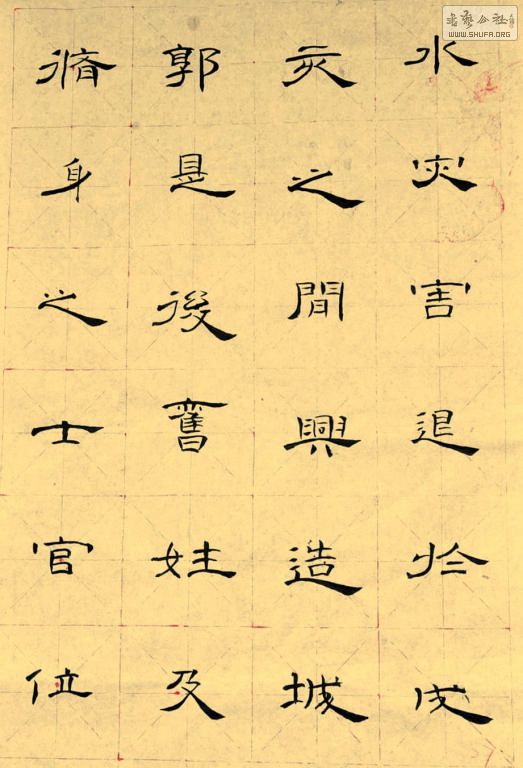 水灾害退於戌
亥之間興造城
郭是後舊姓及
脩身之士官位
書藝公社
WWW.SHUFA.ORG